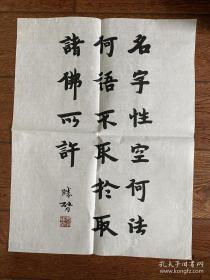 名字性空何法
何语不取於取
諸佛所許